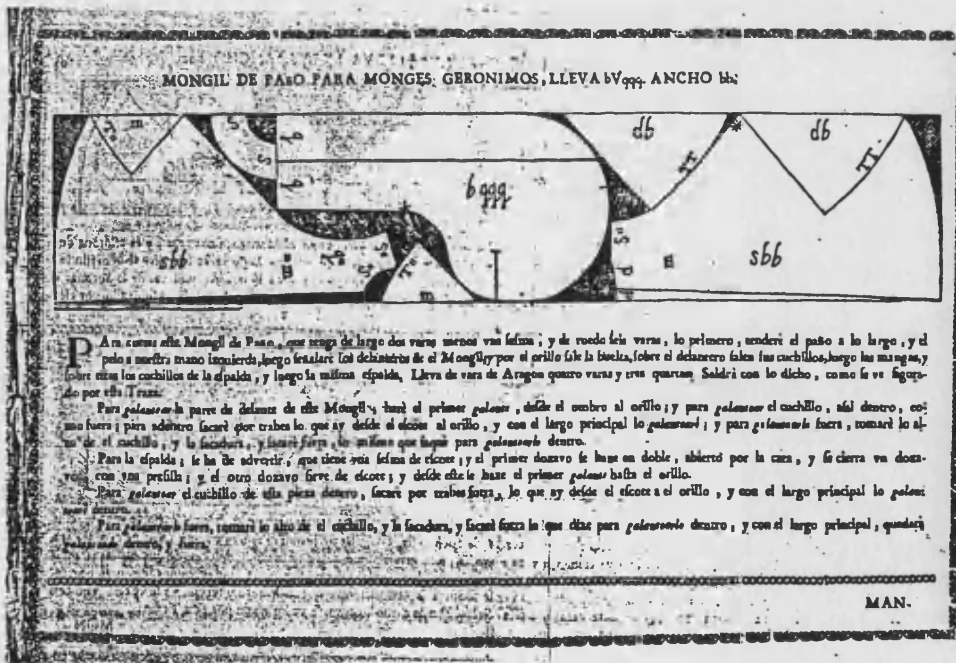 MONGIL DE PAÑO PARA MONGES GERONIMOS, LLEVA bVqqq. ANCHO bb;
m
S
S
q
q
db
TT
db
TT
b qqq
sbb
m
sbb
m
d
m
PAra cortar este Mongil de Paño, que tenga de largo dos varas menos vna sesma; y de ruedo seis varas, lo primero, tenderè el paño a lo largo, y el
pelo a nuestra mano izquierda, luego señalarè los delanteros de el Mongil, y por el orillo sale la buelta, sobre el delantero salen sus cuchillos, luego las mangas, y
sobre estas los cuchillos de la espalda, y luego la misma espalda. Lleva de vara de Aragon quatro varas y tres quartas. Saldrà con lo dicho, como se ve figura-
do por esta traza.
Para galonear la parte de delante de este Mongil, harè el primer galone, desde el ombro al orillo; y para galonear el cuchillo, assi dentro, co-
mo fuera; para adentro sacarè por trabes lo que ay desde el escote al orillo, y con el largo principal lo galonearè; y para galonearlo fuera, tomarè lo al-
to de el cuchillo, y la sacadura, y sacarè fuera, lo mismo que saquè para galonearlo dentro.
Para la espalda; se ha de advertir, que tiene vna sesma de escote; y el primer dozavo se haze en doble, abierto por la cara, y se cierra vn doza-
vo con vna presilla; y el otro dozavo sirve de escote; y desde este le haze el primer galone hasta el orillo.
Para galonear el cuchillo de esta pieza dentro, sacarè por trabes fuera, lo que ay desde el escote a el orillo, y con el largo principal lo galone
dentro.
Para galonearlo fuera, tomarè lo alto de el cuchillo, y la sacadura, y sacarè fuera lo que dize para galonearlo dentro, y con el largo principal, quedarà
dentro, y fuera.
MAN-